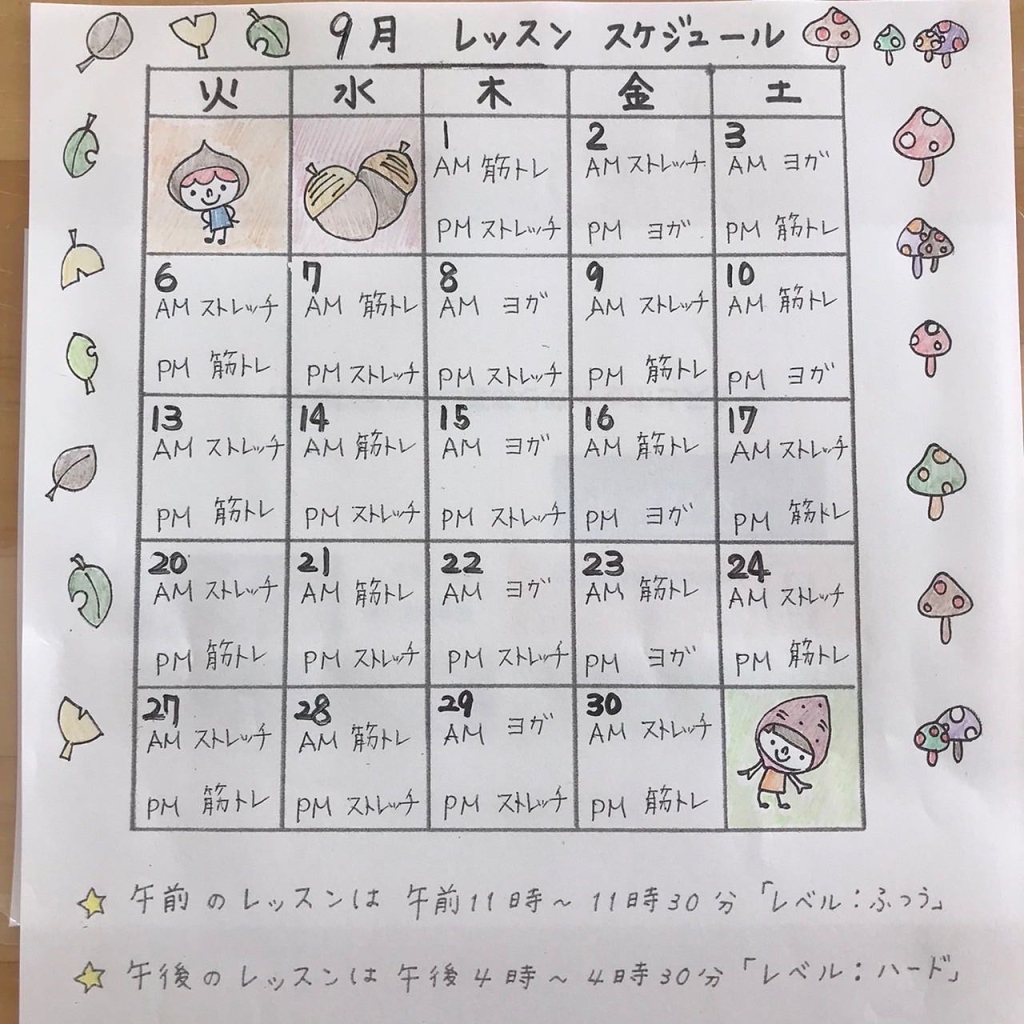 9月 レッスン スケジュール
火 水 木 金 土
1 2 3
AM 筋トレ AM ストレッチ AM ヨガ
PM ストレッチ PM ヨガ PM 筋トレ
6 7 8 9 10
AM ストレッチ AM 筋トレ AM ヨガ AM ストレッチ AM 筋トレ
PM 筋トレ PM ストレッチ PM ストレッチ PM 筋トレ PM ヨガ
13 14 15 16 17
AM ストレッチ AM 筋トレ AM ヨガ AM 筋トレ AM ストレッチ
PM 筋トレ PM ストレッチ PM ストレッチ PM ヨガ PM 筋トレ
20 21 22 23 24
AM ストレッチ AM 筋トレ AM ヨガ AM 筋トレ AM ストレッチ
PM 筋トレ PM ストレッチ PM ストレッチ PM ヨガ PM 筋トレ
27 28 29 30
AM ストレッチ AM 筋トレ AM ヨガ AM ストレッチ
PM 筋トレ PM ストレッチ PM ストレッチ PM 筋トレ
午前のレッスンは 午前11時～11時30分「レベル：ふつう」
午後のレッスンは 午後4時～4時30分「レベル：ハード」